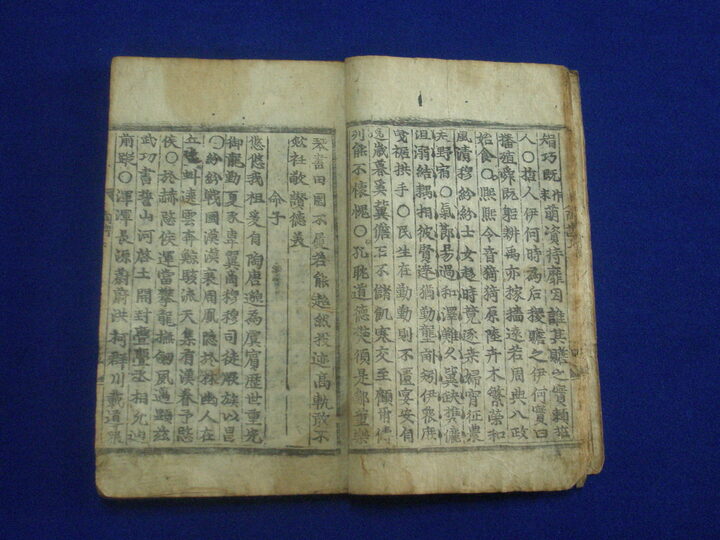 智巧既萌資待靡因誰其贍之實賴哲
人○哲人伊何時為后稷贍之伊何實曰
播殖舜既躬耕禹亦稼穡遠若周典八政
始食○熙熙令音猗猗原陸卉木繁榮和
風清穆紛紛士女趍時競逐桑婦宵征農
夫野宿○氣節易過和澤難久冀缺携儷
沮溺結耦相彼賢達猶勤壟畝矧伊衆庶
曳裾拱手○民生在勤勤則不匱宴安自
逸歲暮奚冀儋石不儲飢寒交至顧爾儔
列能不懷愧○孔耽道德樊須是鄙董樂
琴書田園不履若能超然投迹高軌敢不
歛衽敬讃德美
命子
悠悠我祖爰自陶唐邈為虞賓歷世重光
御龍勤夏豕韋翼商穆穆司徒厥族以昌
○紛紛戰國漠漠衰周鳳隱於林幽人在
丘逸虬遶雲奔鯨駭流天集有漢眷予愍
侯○於赫愍侯運當攀龍撫劒夙邁顯茲
武功書誓山河啓土開封亹亹丞相允迪
前蹤○渾渾長源蔚蔚洪柯群川載導衆